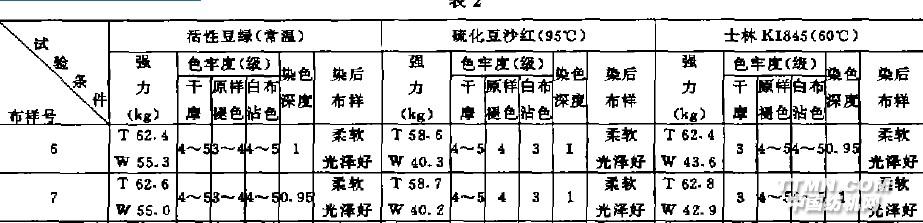 表2
试验条件 活性豆绿(常温) 硫化豆沙红(95℃) 士林KI845(60℃)
布样号 强力(kg) 色牢度(级) 染色深度 染后布样 强力(kg) 色牢度(级) 染色深度 染后布样 强力(kg) 色牢度(级) 染色深度 染后布样
干摩 原样褪色 白布沾色 干摩 原样褪色 白布沾色 干摩 原样褪色 白布沾色
6 T 62.4 4～5 3～4 4～5 1 柔软 T 58.6 4～5 4 3 1 柔软 T 62.4 3 4～5 4～5 0.95 柔软
W 55.3 光泽好 W 40.3 光泽好 W 43.6 光泽好
7 T 62.6 4～5 3～4 4～5 0.95 柔软 T 58.7 4～5 4 3 1 柔软 T 62.8 3 4～5 柔软
W 55.0 光泽好 W 40.2 光泽好 W 42.9 光泽好
TTMN.COM
中国纺机网